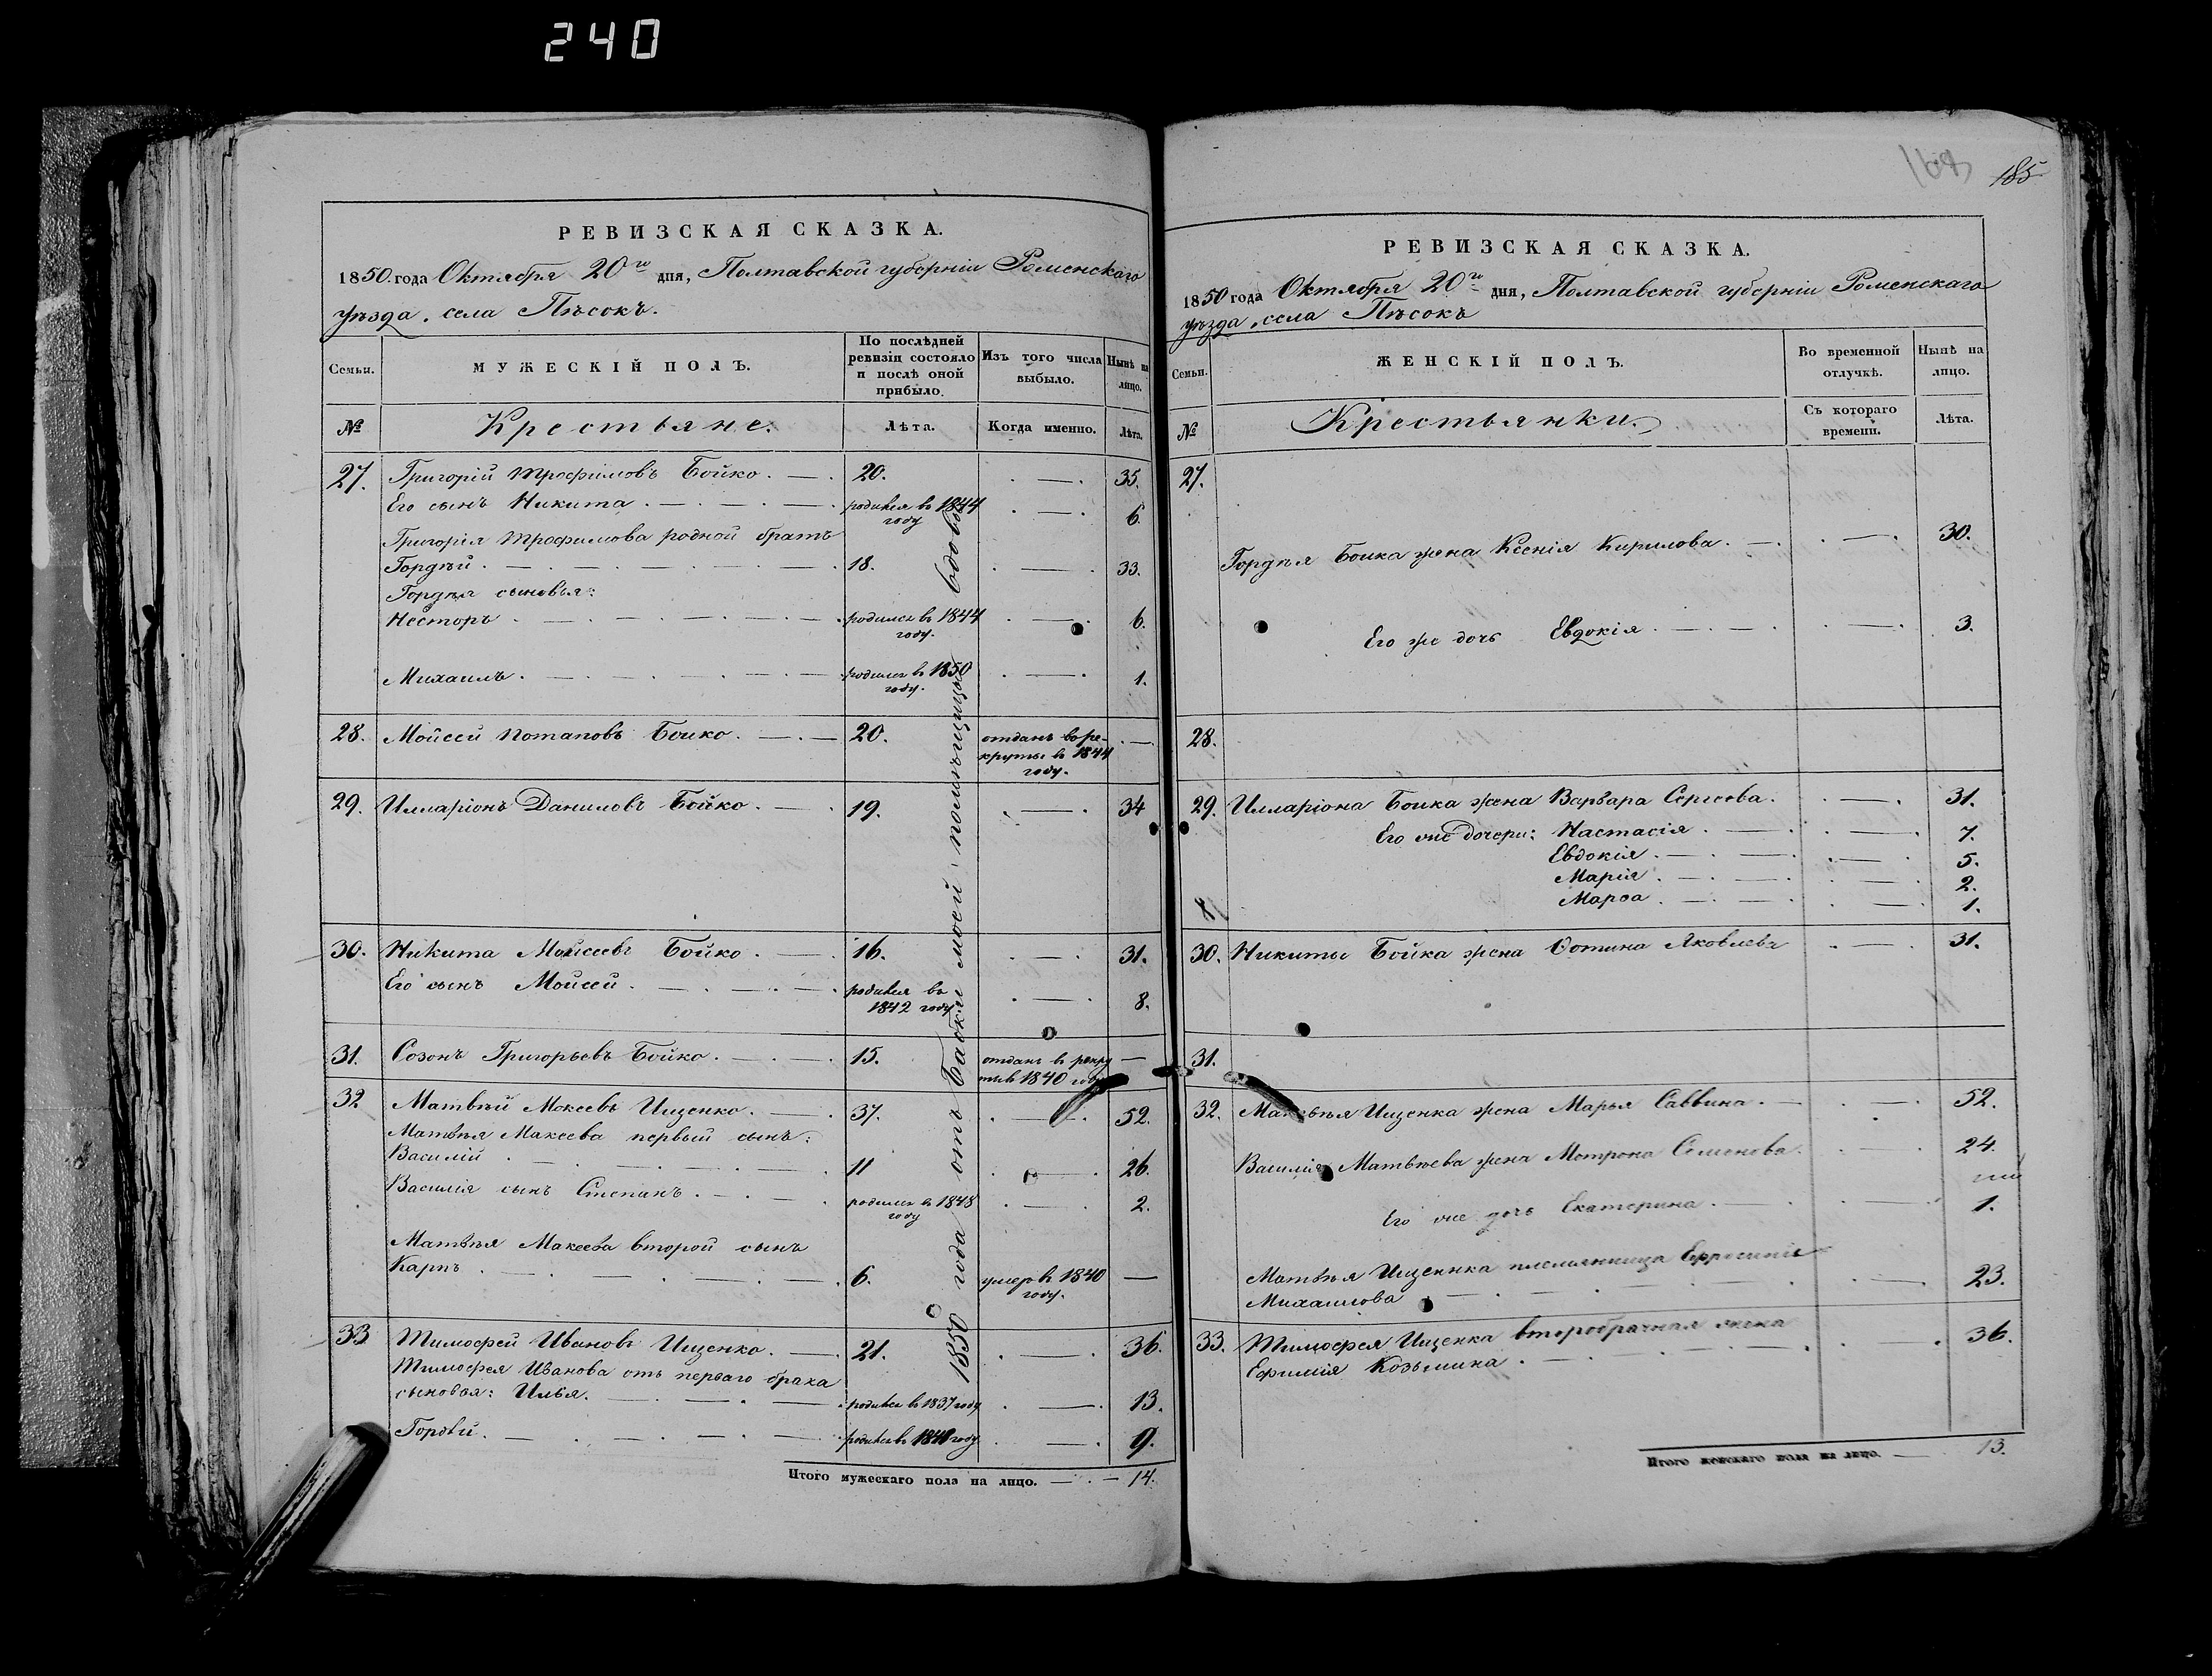 240
185
РЕВИЗСКАЯ СКАЗКА.
1850 года Октября 20го дня, Полтавской губерніи Роменскаго
уѣзда, села Пѣсокъ.
Семьи.
МУЖЕСКІЙ ПОЛЪ.
По послѣдней
ревизіи состояло
и послѣ оной
прибыло.
Изъ того числа
выбыло.
Нынѣ на
лицо.
№
Крестьяне.
Лѣта.
Когда именно.
Лѣта.
27. Григорій Трофимовъ Бойко. 20. 35.
Его сынъ Никита. родился въ 1844 году 6.
Григорія Трофимова родной братъ
Гордѣй. 18. 33.
Гордѣя сыновья:
Несторъ. родился въ 1844 году. 6.
Михаилъ. родился въ 1850 году. 1.
28. Мойсей Потаповъ Бойко. 20. отданъ въ ре-
круты въ 1844
году.
29. Илларіонъ Даниловъ Бойко. 19. 34
30. Никита Мойсеевъ Бойко. 16. 31.
Его сынъ Мойсей. родился въ
1842 году 8.
31. Созонъ Григорьевъ Бойко. 15. отданъ в рекру
ты въ 1840 году
32 Матвѣй Мокеевъ Ищенко. 37. 52.
Матвѣя Макеева первый сынъ:
Василій. 11 26.
Василія сынъ Степанъ. родился въ 1848 году 2.
Матвѣя Макеева второй сынъ
Карпъ. 6. умер въ 1840
году.
33 Тимофей Ивановъ Ищенко. 21. 36.
Тимофея Иванова отъ перваго брака
сыновья: Илья. родился въ 1837 году 13.
Гордѣй. родился въ году 9.
Итого мужескаго пола на лицо. 14.
1850 года отъ Бабки моей помѣщицы вдовы
РЕВИЗСКАЯ СКАЗКА.
1850 года Октября 20го дня, Полтавской губерніи Роменскаго
уѣзда, села Пѣсокъ
Семьи.
ЖЕНСКІЙ ПОЛЪ.
Во временной
отлучкѣ.
Нынѣ на
лицо.
№
Крестьянки.
Съ котораго
времени.
Лѣта.
27.
Гордѣя Бойка жена Ксенія Кирилова. 30.
Его же дочь Евдокія. 3.
28.
29. Илларіона Бойка жена Варвара Сергеева. 31.
Его же дочери: Настасія. 7.
Евдокія. 5.
Марія. 2.
Марѳа. 1.
30. Никиты Бойка жена Ѳотина Яковлева 31.
31.
32. Матвѣя Ищенка жена Марья Саввина. 52.
Василія Матвѣева жена Мотрона Семенова. 24.
Его же дочь Екатерина. 1.
Матвѣя Ищенка племянница Ефросинія
Михаилова. 23.
33. Тимофея Ищенка второбрачная жена 36.
Ефимія Козьмина.
Итого женскаго пола на лицо. 13.